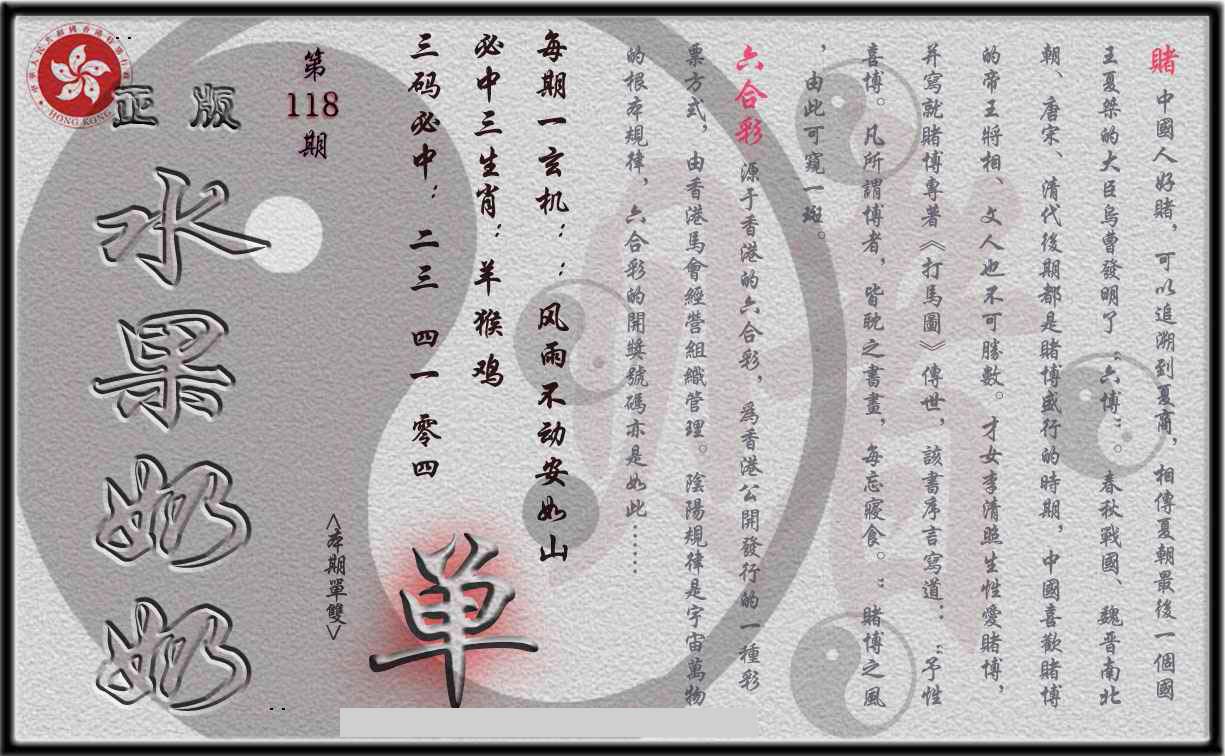 賭 中國人好賭，可以追溯到夏商，相傳夏朝最後一個國
王夏桀的大臣烏曹發明了“六博”。春秋戰國、魏晋南北
朝、唐宋、清代後期都是賭博盛行的時期，中國喜歡賭博
的帝王將相、文人也不可勝數。才女李清照生性愛賭博，
并寫就賭博專著《打馬圖》傳世，該書序言寫道：：“予性
喜博。凡所謂博者，皆耽之書畫，每忘寢食。”賭博之風
，由此可窺一斑。
六合彩 源于香港的六合彩，爲香港公開發行的一種彩
票方式，由香港馬會經營組織管理。陰陽規律是宇宙萬物
的根本規律，六合彩的開獎號碼亦是如此……
每期一玄机：：风雨不动安如山
必中三生肖：羊猴鸡
三码必中：二三 四一 零四
单
<本期單雙>
第
118
期
正版
水果奶奶
HONG KONG